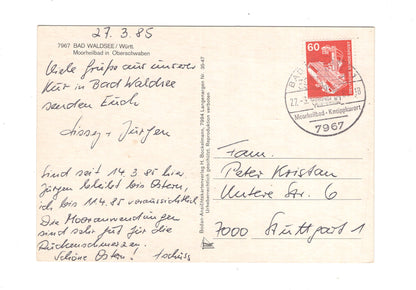 27.3.85
7967 BAD WALDSEE / Württ.
Moorheilbad in Oberschwaben
Viele Grüße aus unserer
Kur in Bad Waldsee
senden Euch
Sissy + Jürgen
Sind seit 14.3.85 hier
Jürgen bleibt bis Ostern,
ich bis 11.4.85 voraussichtlich
Die Mooranwendungen
sind sehr gut für die
Rückenschmerzen.
Schöne Ostern! Tschüss
Boden-Ansichtskartenverlag H. Bockelmann, 7994 Langenargen Nr. 35-67
Urheberrechtlich geschützt. Reproduktion verboten
60
BAD
Moorheilbad - Kneippkurort
7967
Fam.
Peter Kristan
Untere Str. 6
7000 Stuttgart 1